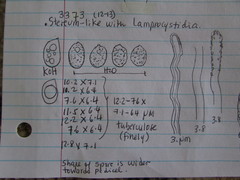 3373 (12+3)
• Stereum-like with Lamprocystidia.
KOH
H2O
10.2 x 7.1
10.2 x 6.4
7.6 x 6.4
11.5 x 6.4
12.2 x 6.4
7.6 x 6.4
12.8 x 7.1
12.2-7.6 x
7.1-6.4 µm
tuberculose
(finely)
3.8
3.8
3. µm
shape of spore is wider
towards pedicel.